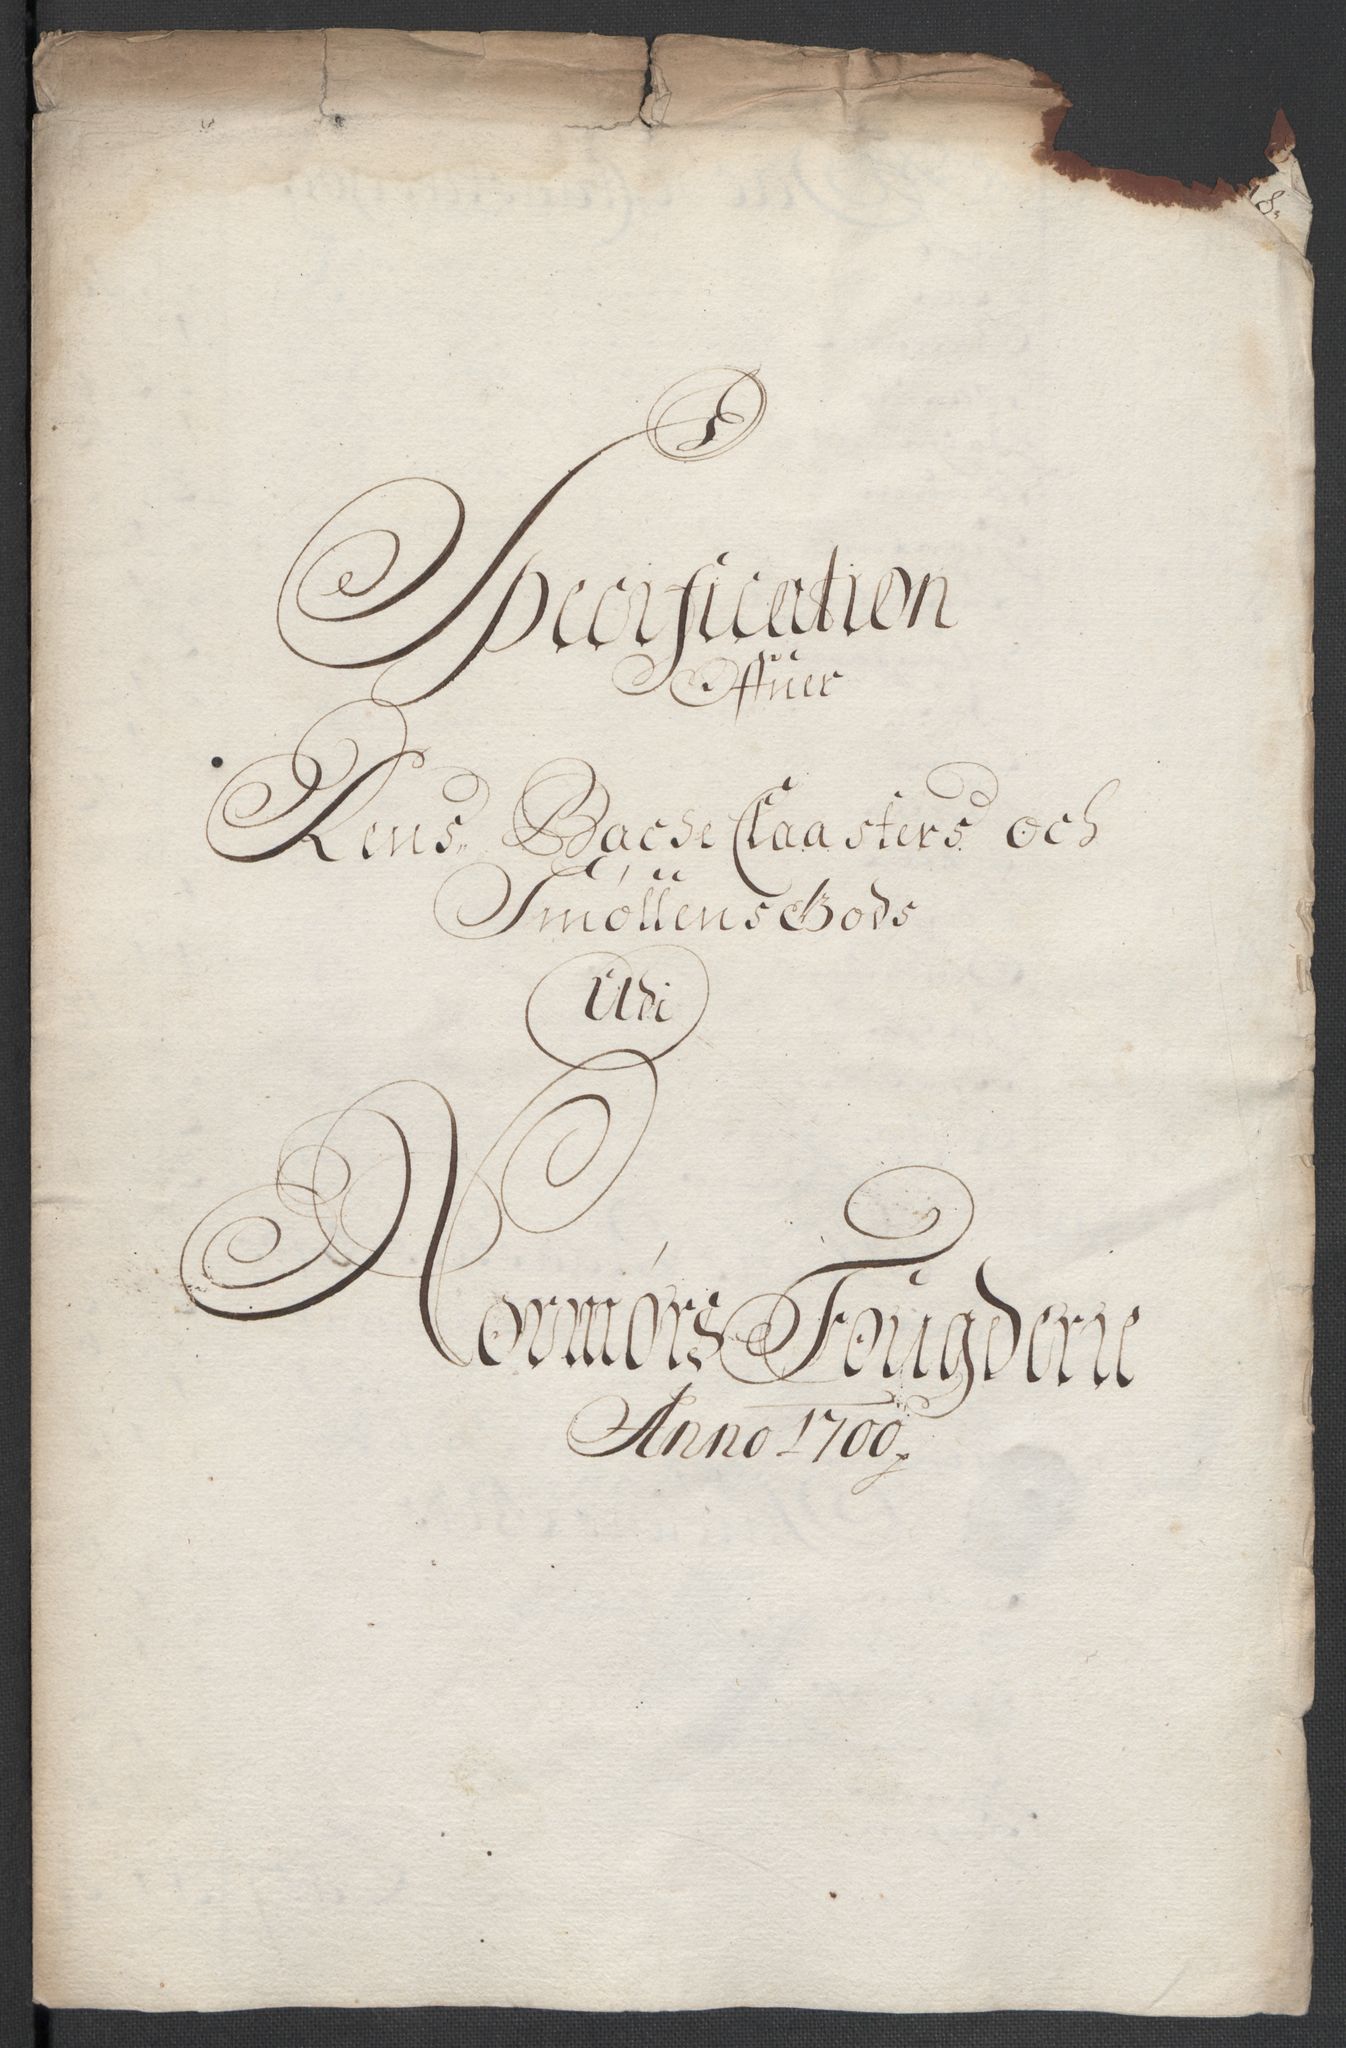 18.
Specification
Offuer
Rens Bache Claasters och
Smöllens Gods
Udi
Normørs Fougderie
Anno 1700